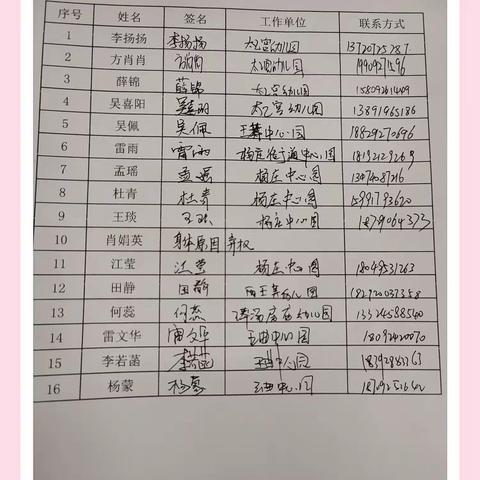 序号 姓名 签名 工作单位 联系方式
1 李扬扬 李扬扬 太乙宫幼儿园
2 方肖肖 方肖肖 太乙宫幼儿园
3 薛锦 薛锦 太乙宫幼儿园 15809261409
4 吴喜阳 吴喜阳 太乙宫幼儿园 13891965186
5 吴佩 吴佩 王莽中心园 18829270696
6 雷雨 雷雨 18192129269
7 孟瑶 孟瑶 杨庄中心园
8 杜青 杜青 杨庄中心园 15991793620
9 王琰 王琰 杨庄中心园 18729064373
10 肖娟英 身体原因弃权
11 江莹 江莹 杨庄中心园 18049531263
12 田静 田静 18292037358
13 何蕊 何蕊 13324588540
14 雷文华 雷文华 王曲中心园 18092420070
15 李若菡 李若菡 王曲中心园
16 杨蒙 杨蒙 王曲中心园